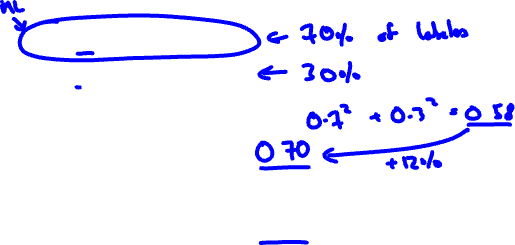 ML
← 70% of labels
← 30%
0.7² + 0.3² = 0.58
0.70
+12%